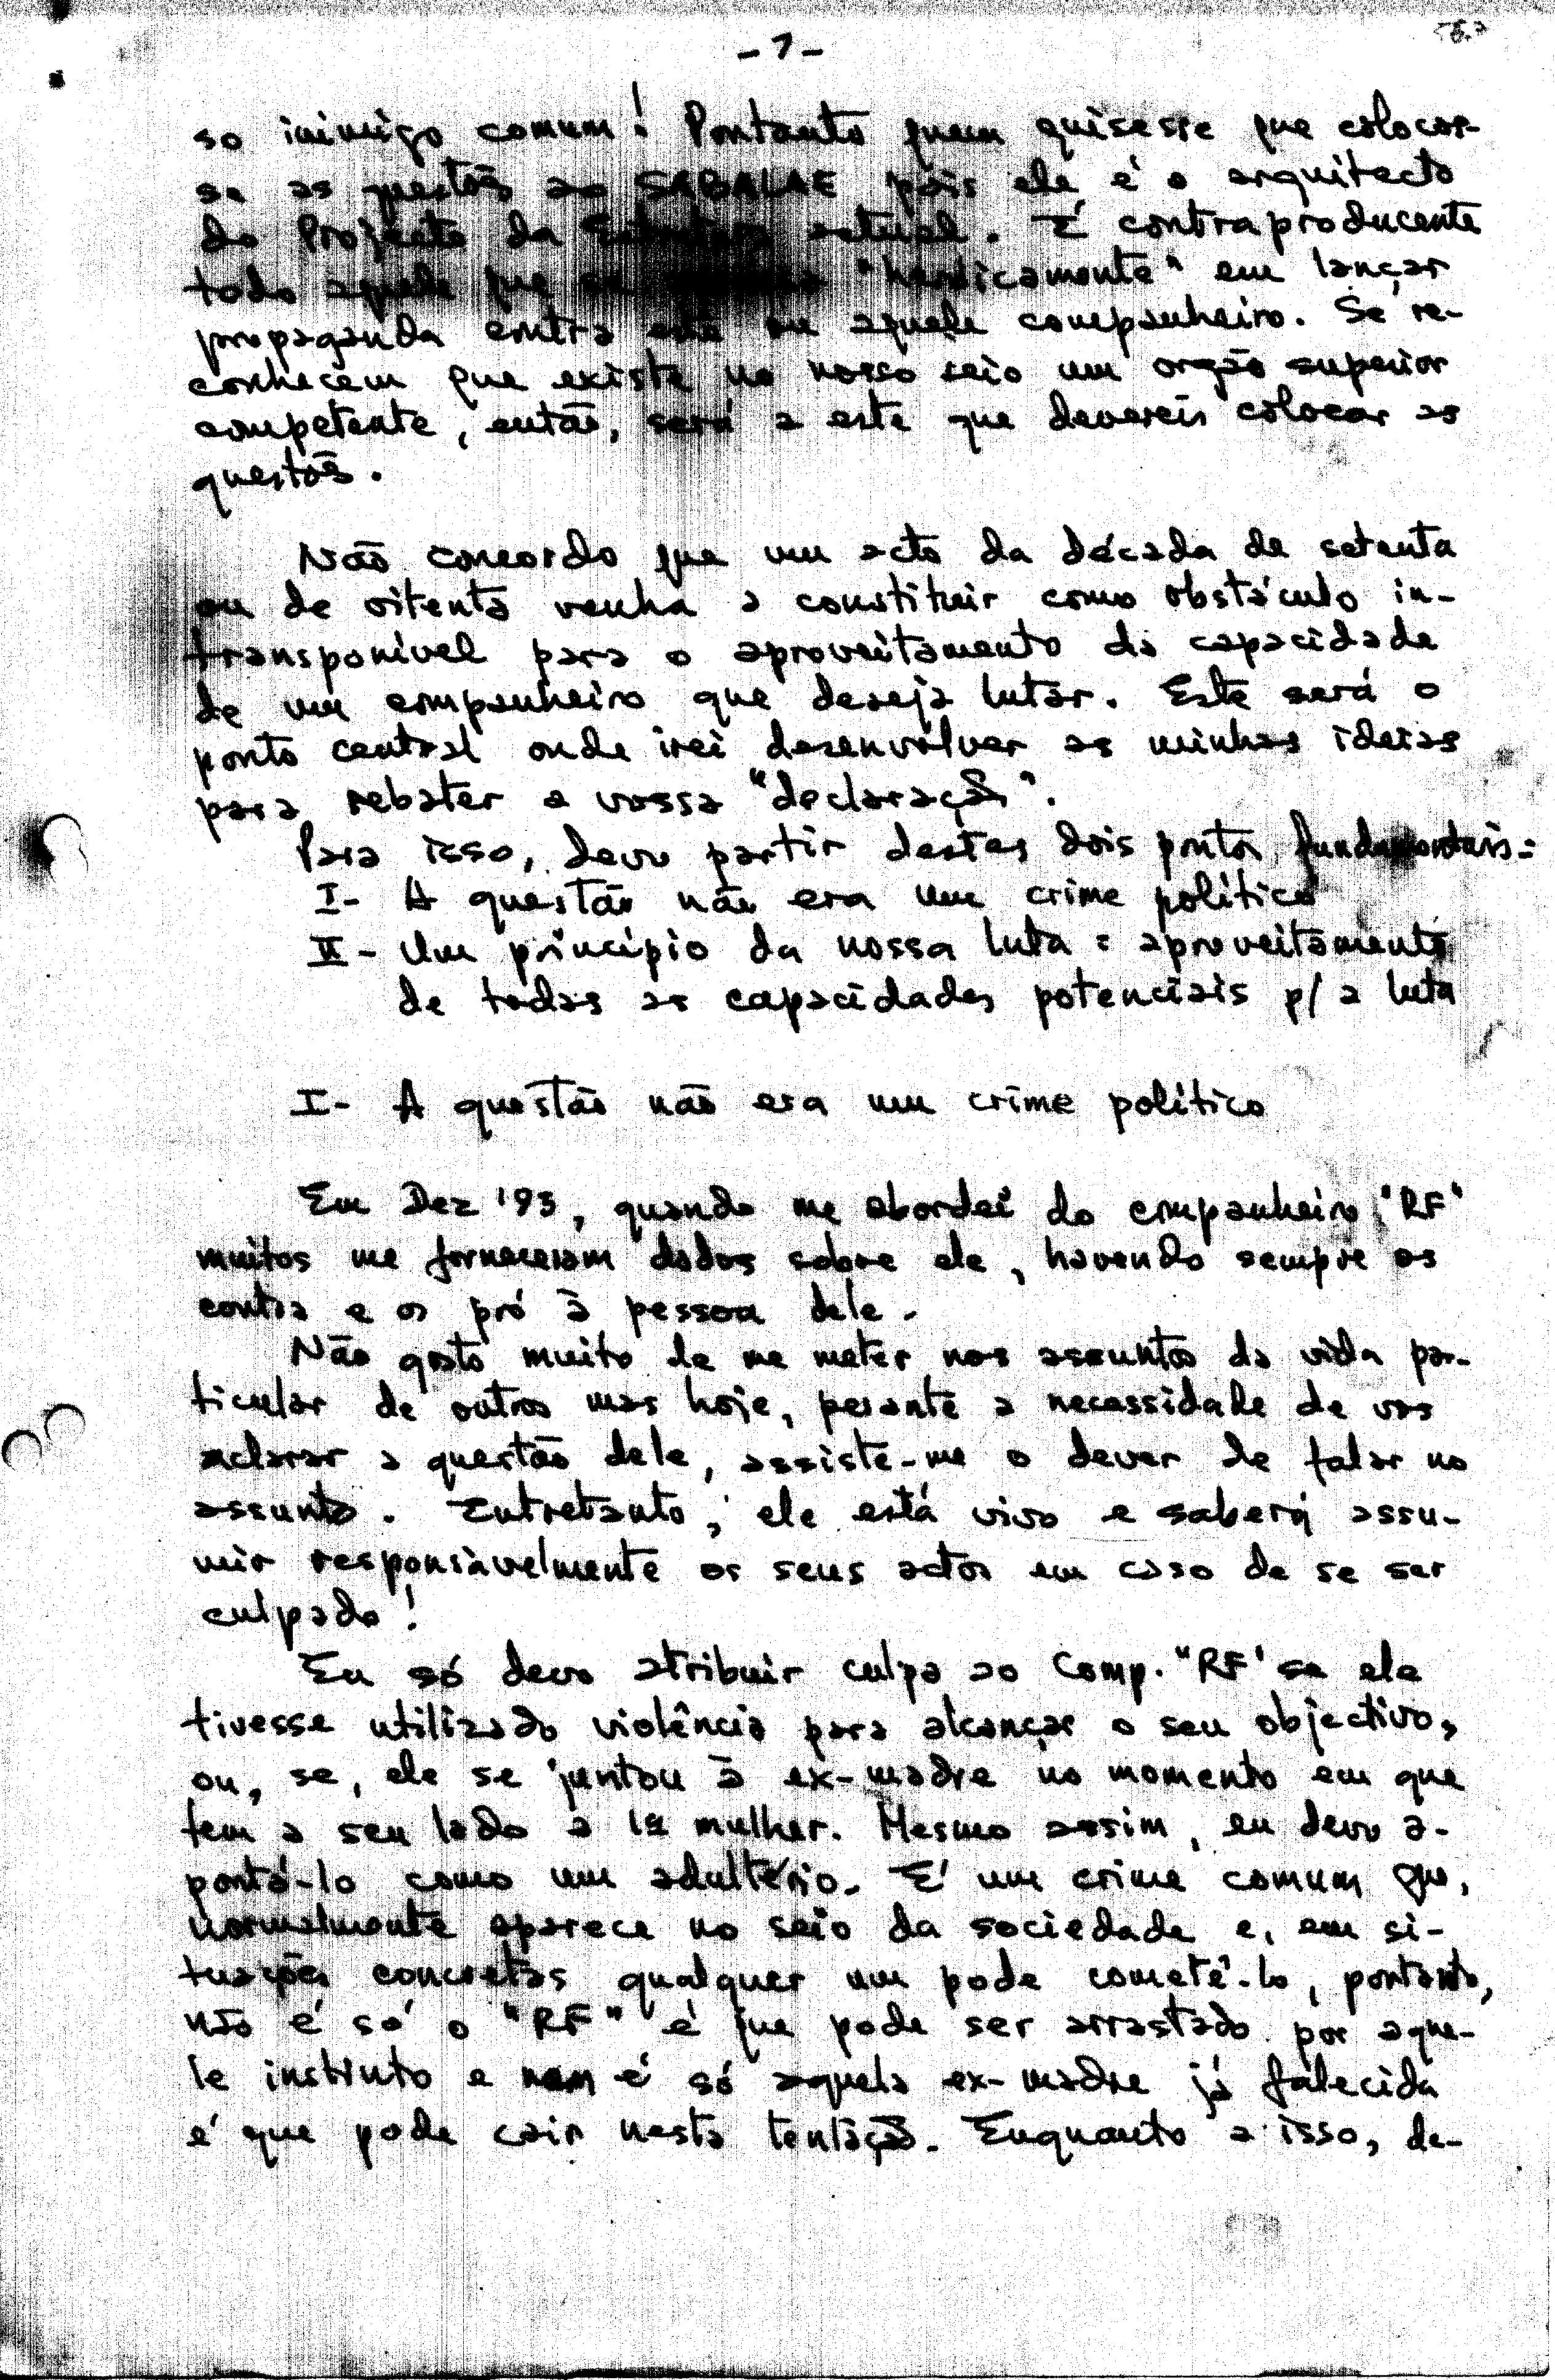 - 7 -
so inimigo comum! Portanto quem quisesse que colocas-
se as questões ao SABALAE pois ele é o arquitecto
do Projecto da Estrutura actual. É contraproducente
todo aquele que se "heroicamente" em lançar
propaganda contra este ou aquele companheiro. Se re-
conhecem que existe no nosso seio um orgão superior
competente, então, será a este que devereis colocar as
questões.
Não concordo que um acto da década de setenta
ou de oitenta venha a constituir como obstáculo in-
transponível para o aproveitamento da capacidade
de um companheiro que deseja lutar. Este será o
ponto central onde irei desenvolver as minhas ideias
para rebater a vossa "declaração".
Para isso, devo partir destes dois pontos fundamentais:
I- A questão não era um crime político
II- Um princípio da nossa luta: aproveitamento
de todas as capacidades potenciais p/ a luta
I- A questão não era um crime político
Em Dez '93, quando me abordei do companheiro "RF"
muitos me forneceram dados sobre ele, havendo sempre os
contra e os pró à pessoa dele.
Não gosto muito de me meter nos assuntos da vida par-
ticular de outros mas hoje, perante a necessidade de vos
aclarar a questão dele, assiste-me o dever de falar no
assunto. Entretanto, ele está vivo e saberá assu-
mir responsàvelmente os seus actos em caso de se ser
culpado!
Eu só devo atribuir culpa ao Comp. "RF" se ele
tivesse utilizado violência para alcançar o seu objectivo,
ou, se, ele se juntou à ex-madre no momento em que
tem a seu lado a 1ª mulher. Mesmo assim, eu devo a-
pontá-lo como um adultério. É um crime comum que,
normalmente aparece no seio da sociedade e, em si-
tuações concretas qualquer um pode cometê-lo, portanto,
não é só o "RF" é que pode ser arrastado por aque-
le instinto e nem é só aquela ex-madre já falecida
é que pode cair nesta tentação. Enquanto a isso, de-